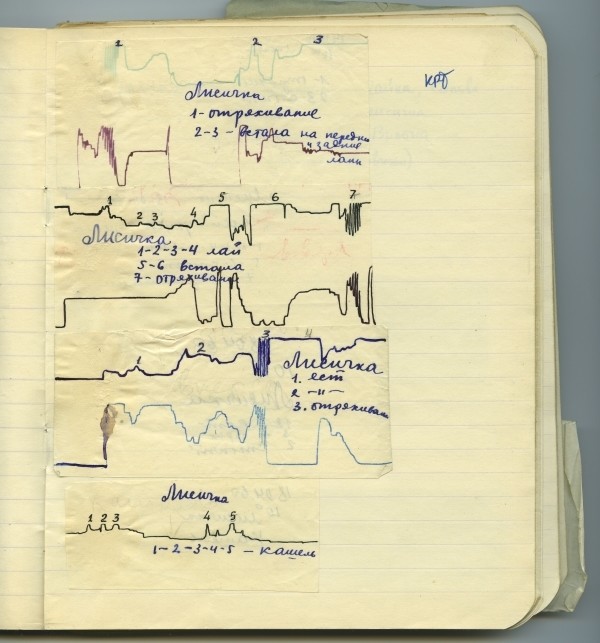 1 2 3
Лисичка
1- отряхивание
2-3- встала на передни
и задние
лапы
1 2 3 4 5 6 7
Лисичка
1-2-3-4 лай
5-6 встала
7- отряхивани
1 2 3 4
Лисичка
1. ест
2 -"-
3. отряхиван
Лисичка
1 2 3 4 5
1-2-3-4-5 - кашель